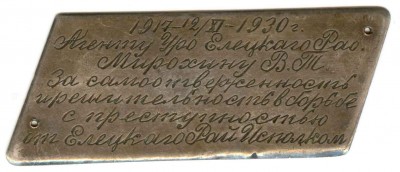 1917-12/XI-1930 г.
Агенту Уро Елецкаго Рао.
Мирохину В.Т
За самоотверженность
и решительность в борьбе
с преступностью
от Елецкаго Рай Исполком